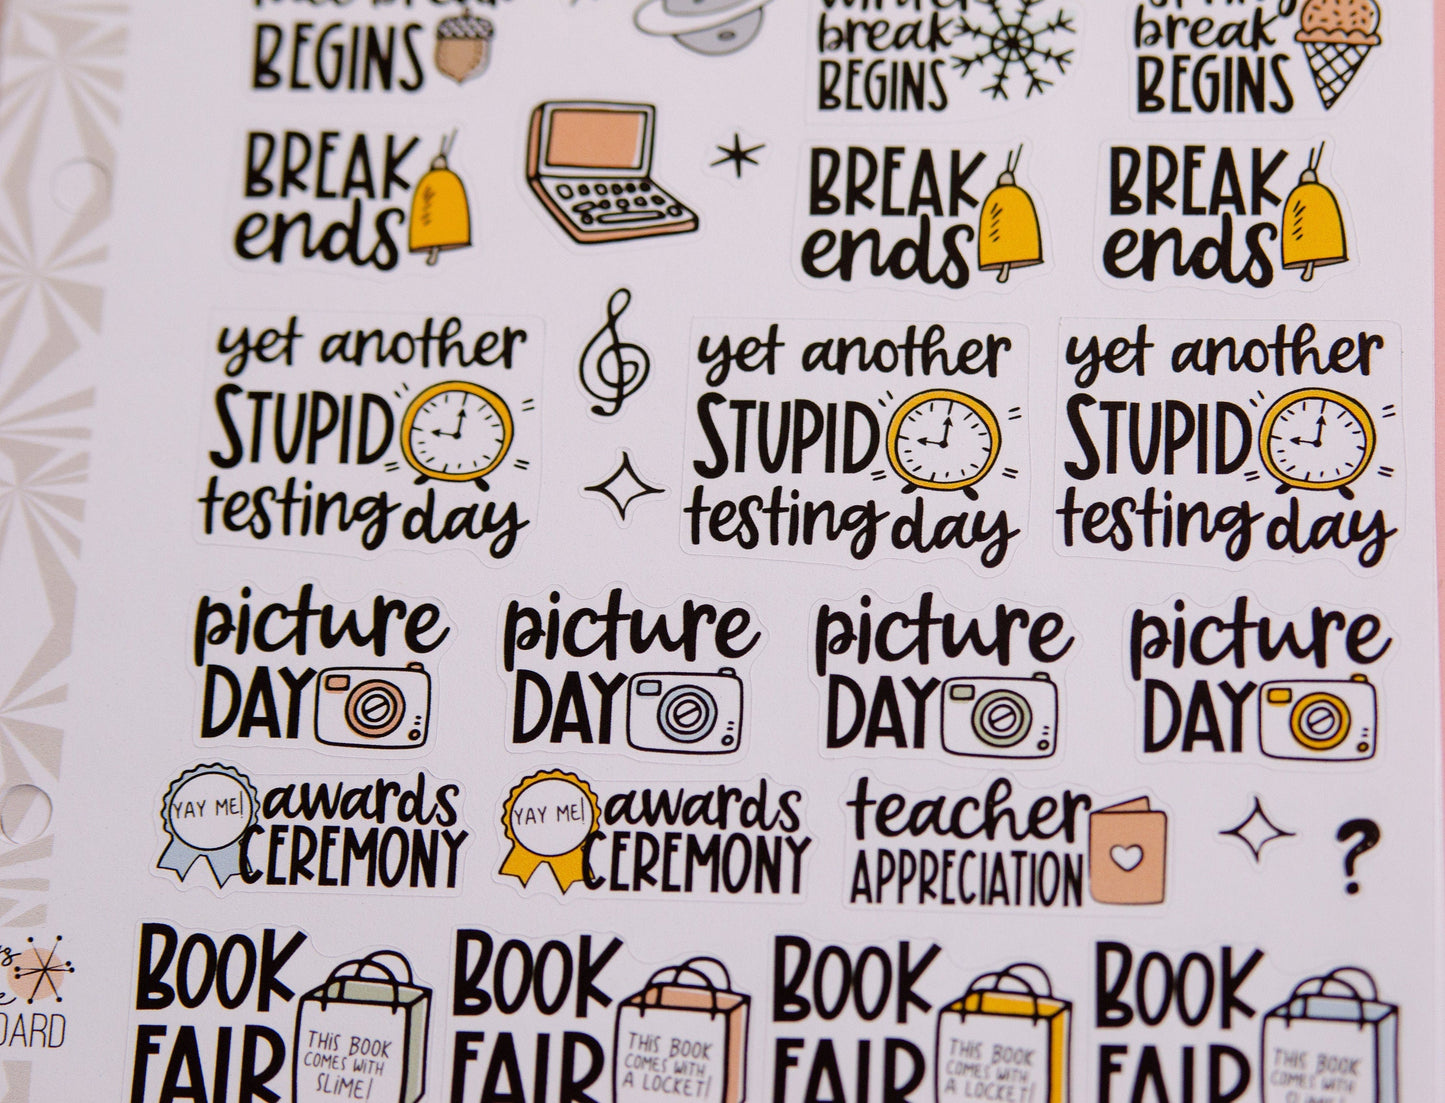 break
BEGINS
winter
break
BEGINS
break
BEGINS
BREAK
ends
BREAK
ends
BREAK
ends
yet another
STUPID
testing day
yet another
STUPID
testing day
yet another
STUPID
testing day
picture
DAY
picture
DAY
picture
DAY
picture
DAY
YAY ME!
awards
CEREMONY
YAY ME!
awards
CEREMONY
teacher
APPRECIATION
?
BOOK
FAIR
THIS BOOK
COMES WITH
SLIME!
BOOK
FAIR
THIS BOOK
COMES WITH
A LOCKET!
BOOK
FAIR
THIS BOOK
COMES WITH
A LOCKET!
BOOK
FAIR
THIS BOOK
COMES WITH
SLIME!